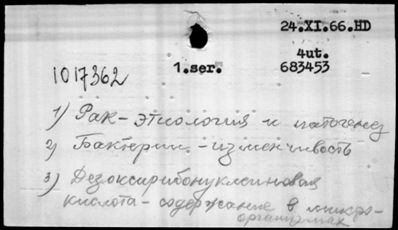 24.XI.66.HD
4ut.
1.ser. 683453
1017362
1) Рак - этиология и патогенез
2) Бактерии - изменчивость
3) Дезоксирибонуклеиновая
кислота - содержание в микро-
организмах